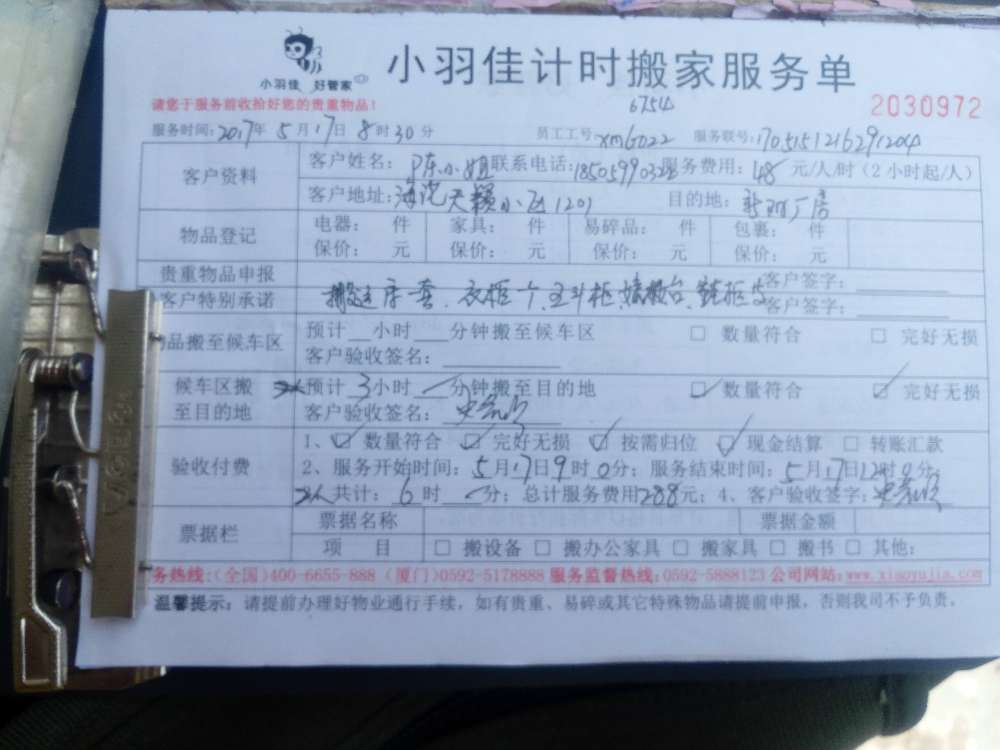 小羽佳 好管家
小羽佳计时搬家服务单
请您于服务前收拾好您的贵重物品!
6754
2030972
服务时间:2017年5月17日8时30分 员工工号:xm6022 服务联号:1705151216291204
客户资料 客户姓名:陈小姐 联系电话:1850599032 服务费用:48元/人/时(2小时起/人)
客户地址:海沧天籁小区1201 目的地:
物品登记 电器: 件 家具: 件 易碎品: 件 包裹: 件
保价: 元 保价: 元 保价: 元 保价: 元
贵重物品申报 客户签字:
客户特别承诺 搬运床一套、衣柜一个、五斗柜、 客户签字:
品搬至候车区 预计 小时 分钟搬至候车区 □ 数量符合 □ 完好无损
客户验收签名:
候车区搬 2人预计3小时 分钟搬至目的地 ☑ 数量符合 ☑ 完好无损
至目的地 客户验收签名:
验收付费 1、☑ 数量符合 ☑ 完好无损 ☑ 按需归位 ☑ 现金结算 □ 转账汇款
2、服务开始时间:5月17日9时0分;服务结束时间:5月17日12时0分;
2人共计:6时 分;总计服务费用288元;4、客户验收签字:
票据栏 票据名称 票据金额
项 目 □ 搬设备 □ 搬办公家具 □ 搬家具 □ 搬书 □ 其他:
务热线:(全国)400-6655-888 (厦门)0592-5178888 服务监督热线:0592-5888123 公司网站:www.xiaoyujia.com
温馨提示:请提前办理好物业通行手续,如有贵重、易碎或其它特殊物品请提前申报,否则我司不予负责。